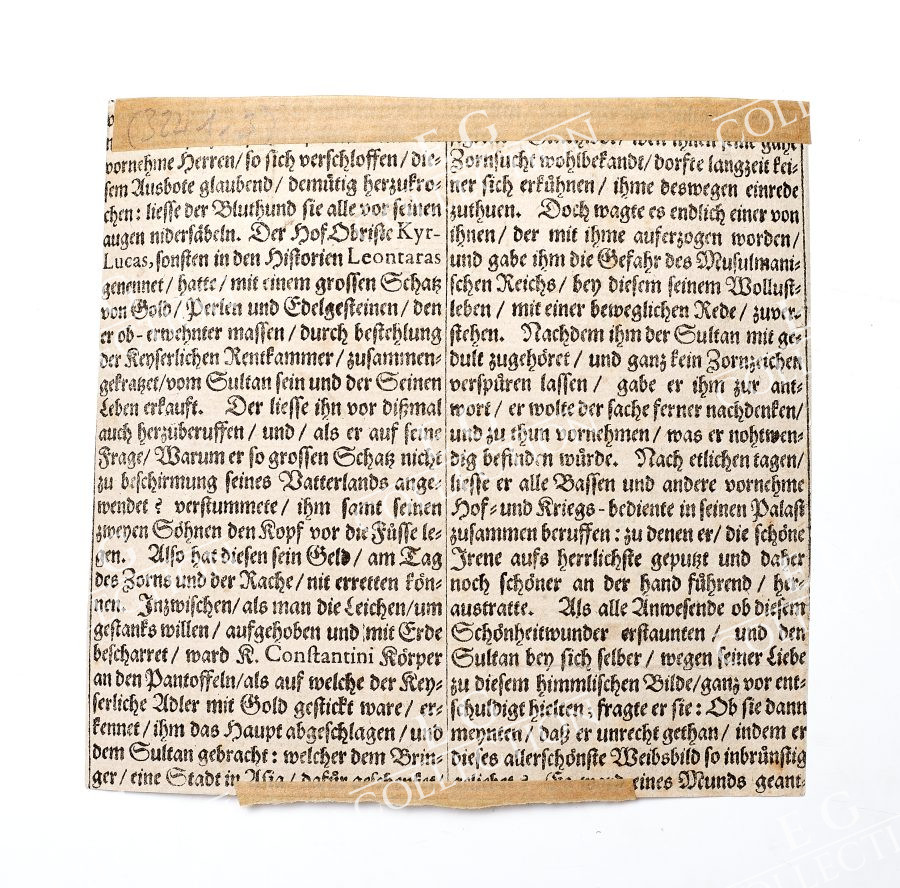 (3241,3)
vornehme Herren/ so sich verschlossen/ die-
sem Ausbote glaubend/ demütig herzukro-
chen: liesse der Bluthund sie alle vor seinen
augen nidersäbeln. Der HofObriste Kyr-
Lucas, sonsten in den Historien Leontaras
genennet/ hatte/ mit einem grossen Schatz
von Gold/ Perlen und Edelgesteinen/ den
er ob-erwehnter massen/ durch bestehlung
der Keyserlichen Rentkammer/ zusammen-
gekratzet/ vom Sultan sein und der Seinen
Leben erkauft. Der liesse ihn vor dißmal
auch herzüberuffen/ und/ als er auf seine
Frage/ Warum er so grossen Schatz nicht
zu beschirmung seines Vatterlands ange-
wendet? verstummete/ ihm samt seinen
zweyen Söhnen den Kopf vor die Füsse le-
gen. Also hat diesen sein Geld/ am Tag
des Zorns und der Rache/ nit erretten kön-
nen. Inzwischen/ als man die Leichen/ um
gestanks willen/ aufgehoben und mit Erde
bescharret/ ward K. Constantini Körper
an den Pantoffeln/ als auf welche der Key-
serliche Adler mit Gold gestickt ware/ er-
kennet/ ihm das Haupt abgeschlagen/ und
dem Sultan gebracht: welcher dem Brin-
ger/ eine Stadt in Asia/ dafür geschenket/
Zornsucht wohlbekandt/ dorfte langzeit kei-
ner sich erkühnen/ ihme deswegen einrede
zuthuen. Doch wagte es endlich einer von
ihnen/ der mit ihme auferzogen worden/
und gabe ihm die Gefahr des Musulmani-
schen Reichs/ bey diesem seinem Wollust-
leben/ mit einer beweglichen Rede/ zuver-
stehen. Nachdem ihm der Sultan mit ge-
dult zugehöret/ und ganz kein Zornzeichen
verspüren lassen/ gabe er ihm zur ant-
wort/ er wolte der sache ferner nachdenken/
und zu thun vornehmen/ was er nohtwen-
dig befinden würde. Nach etlichen tagen/
liesse er alle Bassen und andere vornehme
Hof- und Kriegs-bediente in seinen Palast
zusammen beruffen: zu denen er/ die schöne
Irene aufs herrlichste geputzt und daher
noch schöner an der hand führend/ her-
austratte. Als alle Anwesende ob diesem
Schönheitwunder erstaunten/ und den
Sultan bey sich selber/ wegen seiner Liebe
zu diesem himmlischen Bilde/ ganz vor ent-
schuldigt hielten; fragte er sie: Ob sie dann
meynten/ daß er unrecht gethan/ indem er
dieses allerschönste Weibsbild so inbrünstig
eines Munds geant-